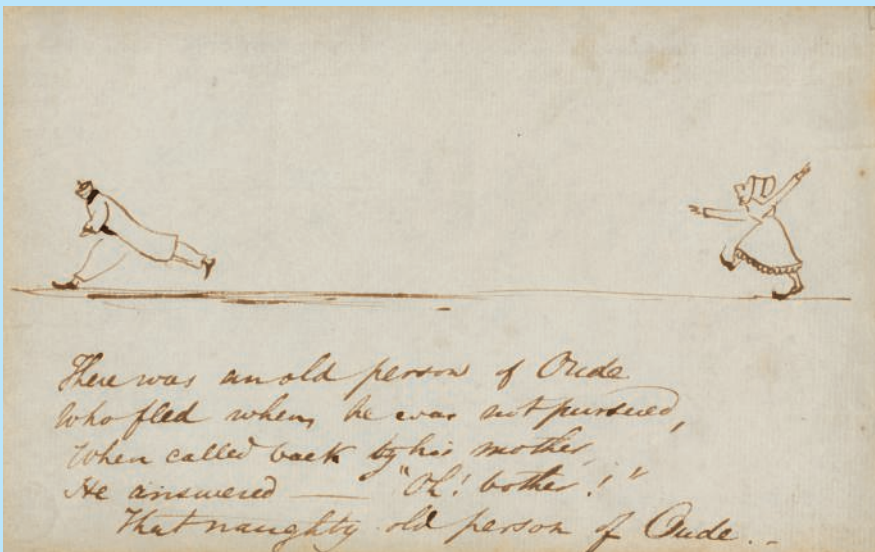 There was an old person of Oude
Who fled when he was not pursued,
When called back by his mother,
He answered — "Oh! bother!"
That naughty old person of Oude..